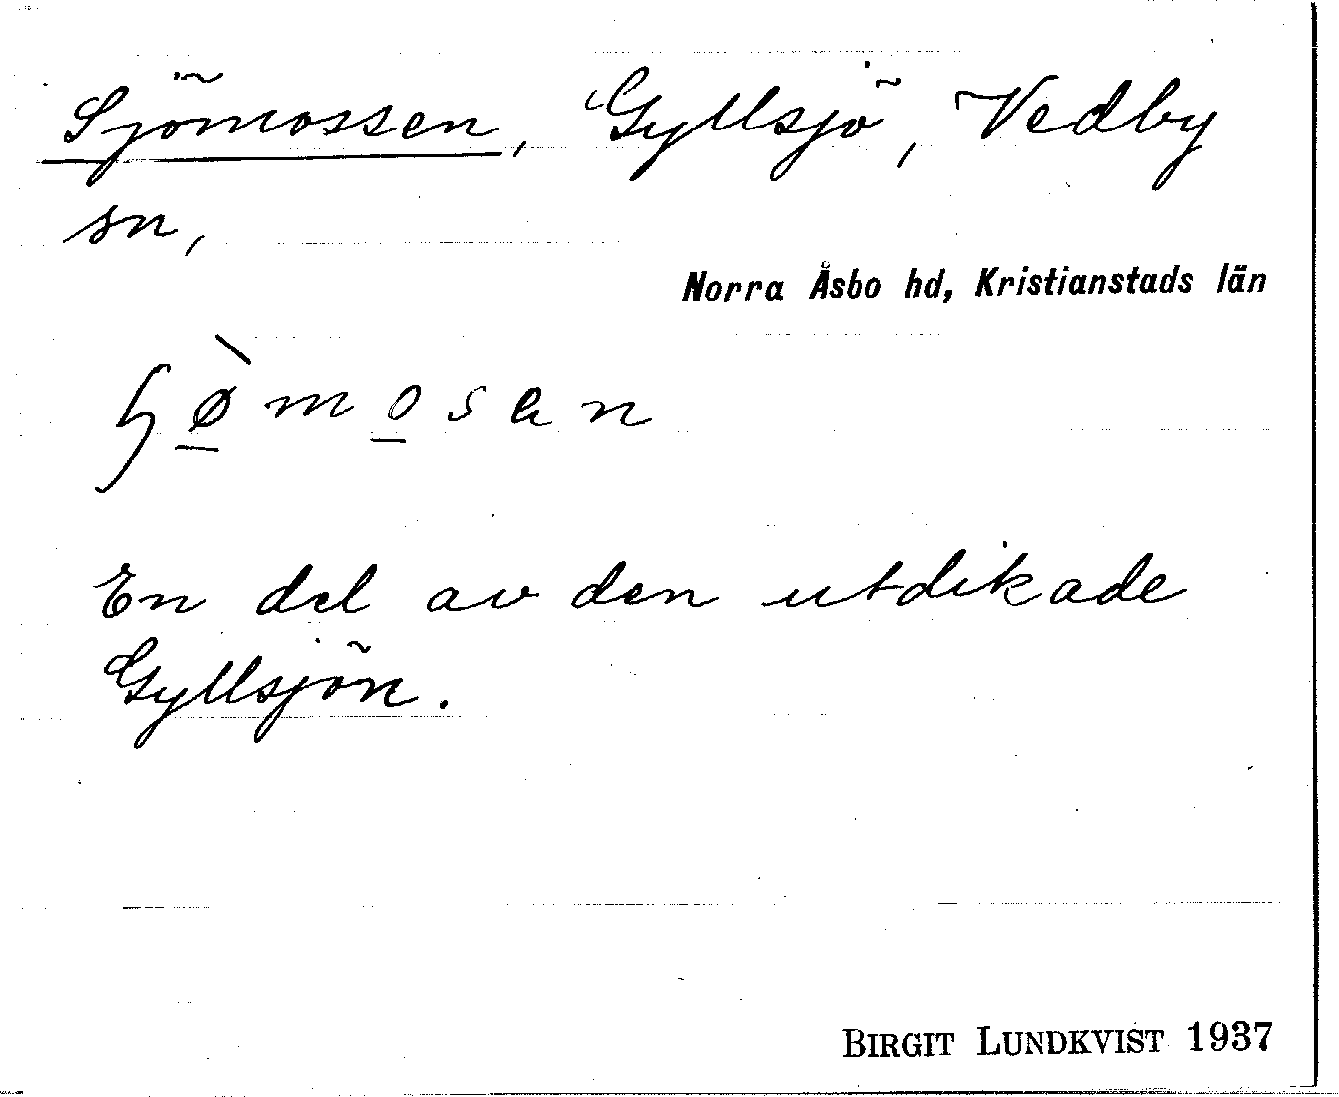 Sjömossen, Gyllsjö, Vedby
sn,
Norra Åsbo hd, Kristianstads län
ɧø̠̀mo̠sən
En del av den utdikade
Gyllsjön.
BIRGIT LUNDKVIST 1937